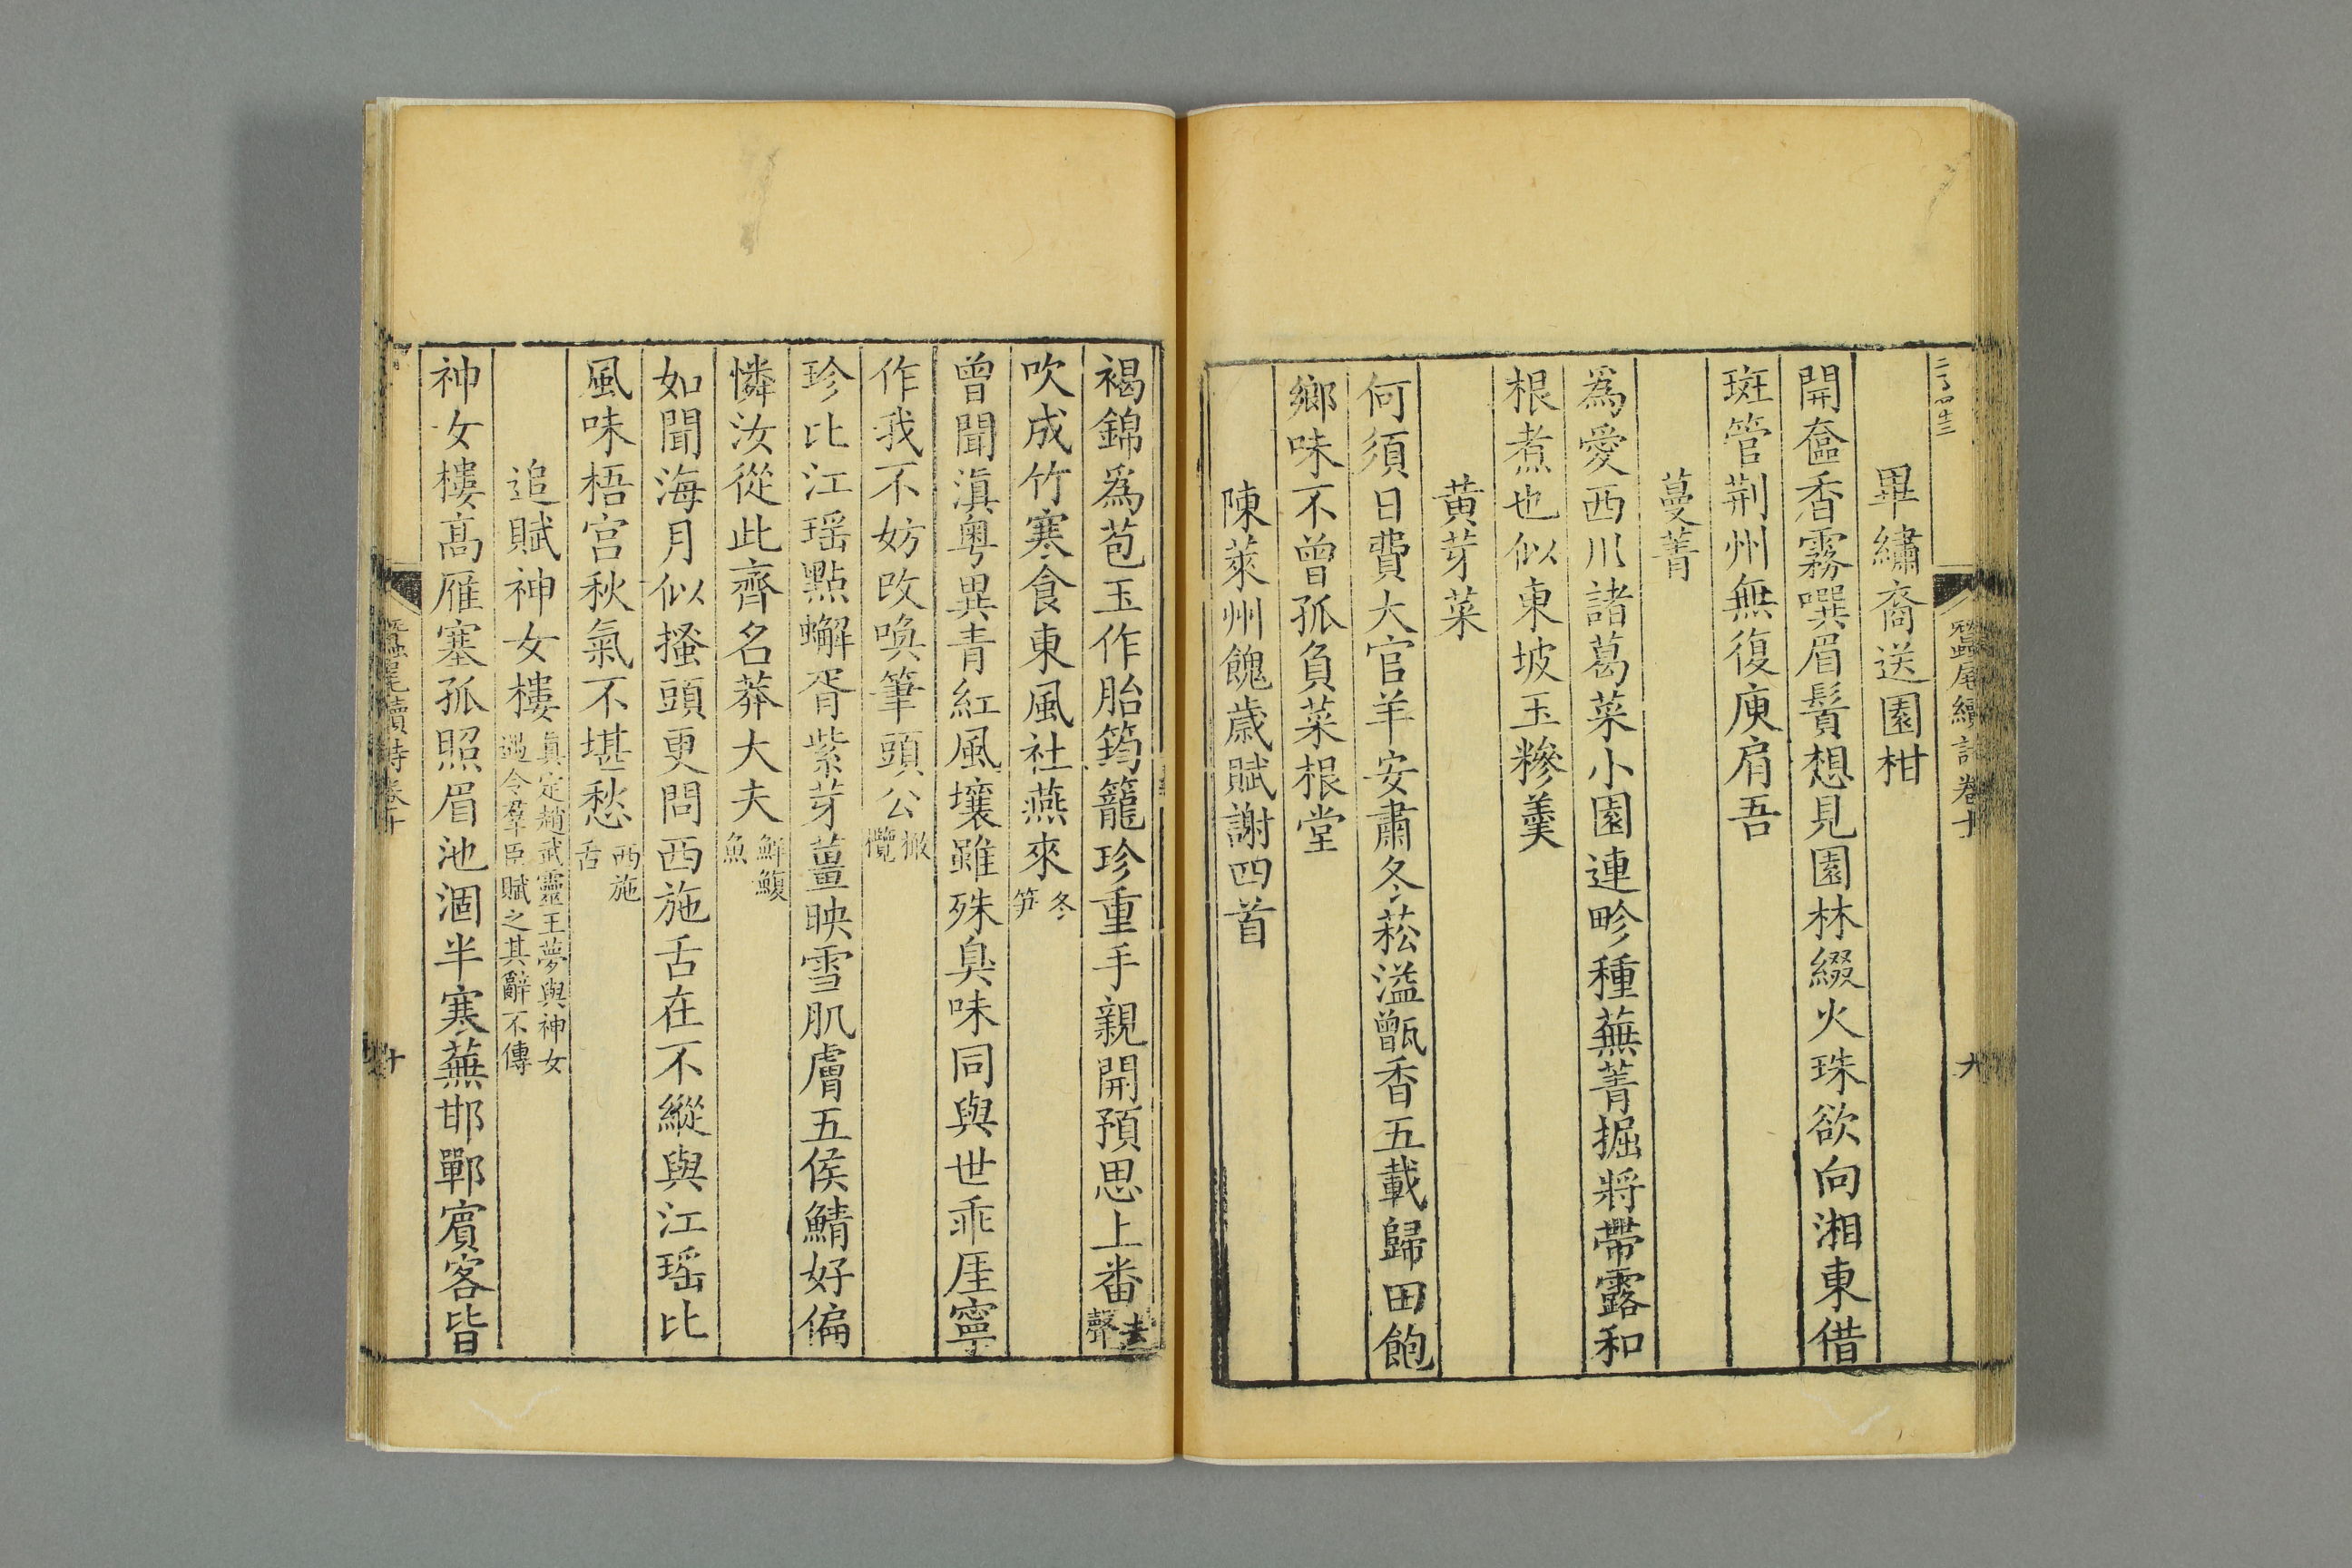 畢繡裔送園柑
開奩香霧噀眉鬢想見園林綴火珠欲向湘東借
斑管荆州無復庾肩吾
蔓菁
爲愛西川諸葛菜小園連畛種蕪菁掘將帶露和
根煮也似東坡玉糝羹
黄芽菜
何須日費大官羊安肅冬菘溢甑香五載歸田飽
鄉味不曾孤負菜根堂
陳萊州餽歲賦謝四首
蠶尾續詩卷十
九
褐錦爲苞玉作胎筠籠珍重手親開預思上番去聲
吹成竹寒食東風社燕來冬笋
曾聞滇粤異青紅風壤雖殊臭味同與世乖厓寧
作我不妨改喚筆頭公橄欖
珍比江瑶點蠏胥紫芽薑映雪肌膚五侯鯖好偏
憐汝從此齊名莽大夫鮮鰒魚
如聞海月似搔頭更問西施舌在不縱與江瑶比
風味梧宫秋氣不堪愁西施舌
追賦神女樓真定趙武靈王夢與神女遇令羣臣賦之其辭不傳
神女樓高雁塞孤照眉池涸半寒蕪邯鄲賓客皆
蠶尾續詩卷十
十